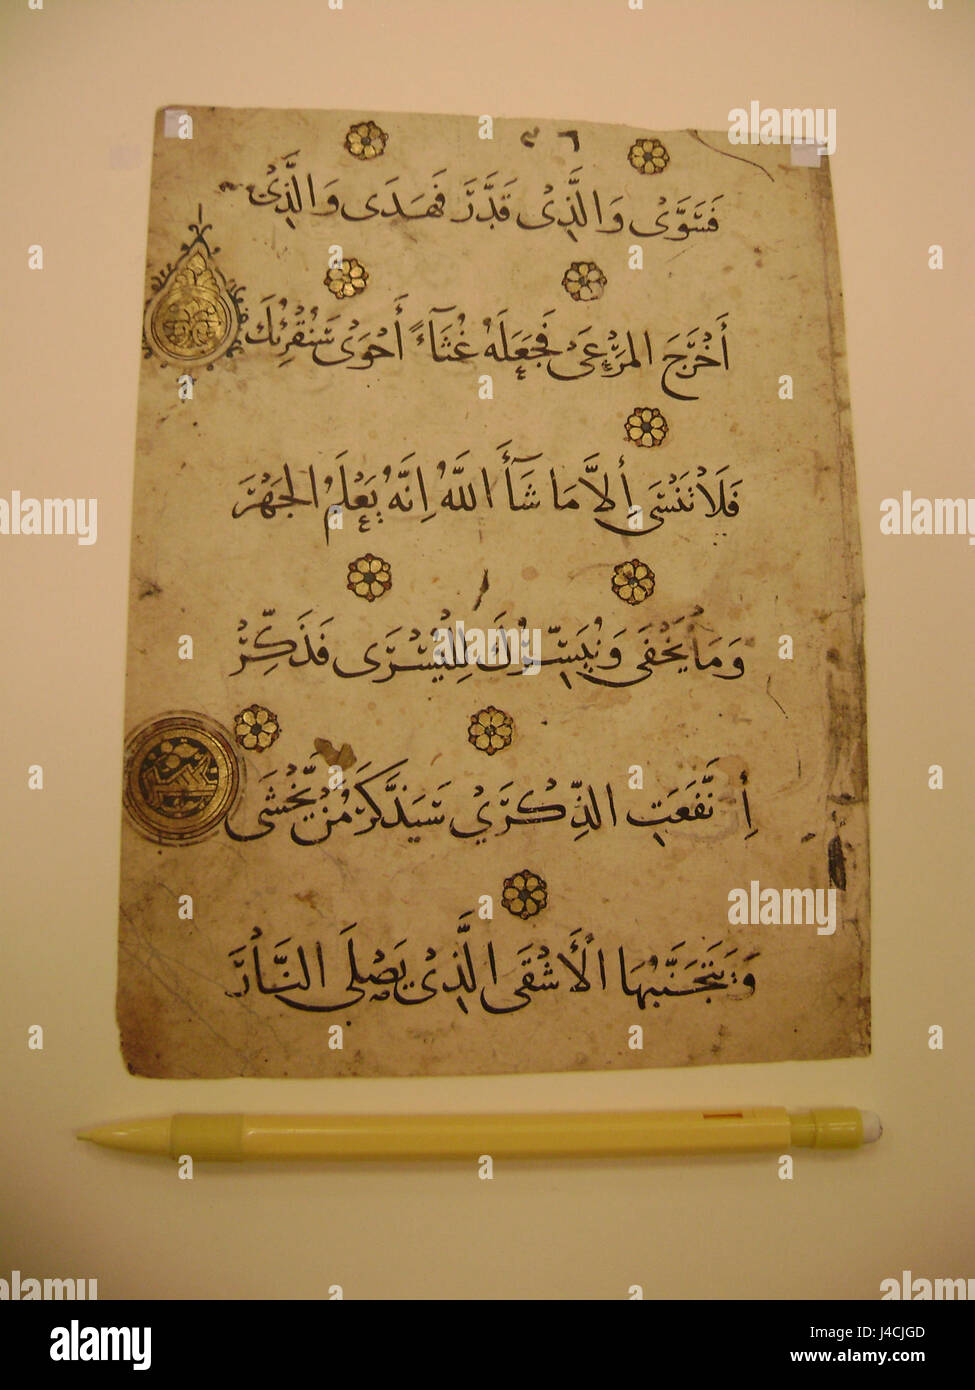 ٤٦
فَسَوَّىٰ وَالَّذِىْ قَدَّرَ فَهَدَى وَالَّذِىْ
أَخْرَجَ المَرْعَىْ فَجَعَلَهُ غُثَآءً أَحْوَىْ سَنُقْرِئُكَ
فَلَا تَنْسَى إِلَّا مَا شَآأَ اللَّهُ اِنَّهُ يَعْلَمُ الجَهْرَ
وَمَا يَخْفَى وَنُيَسِّرُكَ لِلْيُسْرَى فَذَكِّرْ
أِنْ نَّفَعَتِ الذِّكْرَىْ سَيَذَّكَّرُ مَنْ يَّخْشَى
وَيَتَجَنَّبُهَا الْأَشْقَى الَّذِىْ يَصْلَى النَّارَ
alamy stock photo
J4CJGD
www.alamy.com